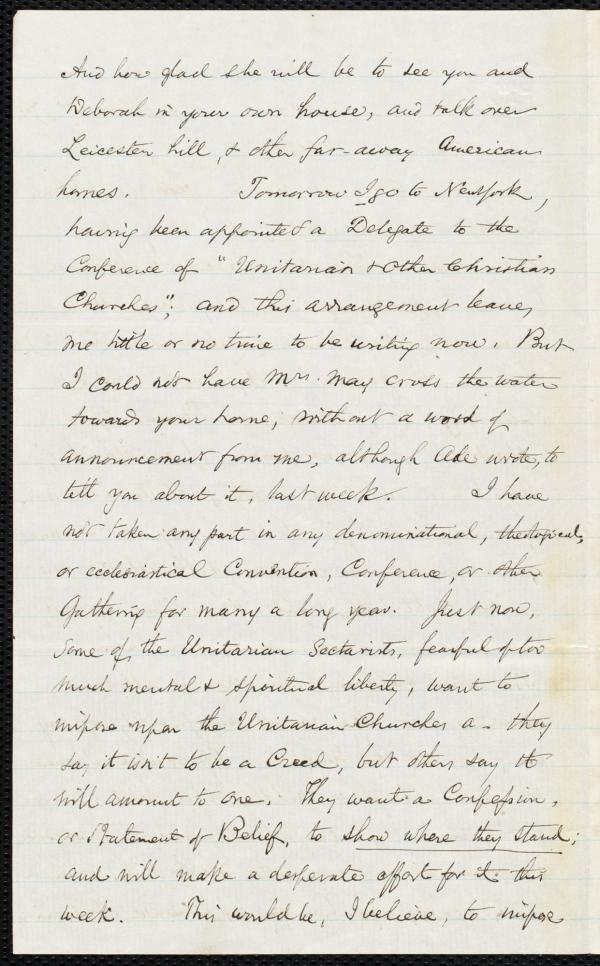 And how glad she will be to see you and
Deborah in your own house, and talk over
Leicester hill, & other far-away American
homes. Tomorrow I go to New York,
having been appointed a Delegate to the
Conference of "Unitarian & other Christian
Churches"; and this arrangement leaves
me little or no time to be writing now. But
I could not have Mrs. May cross the water
towards your home, without a word of
announcement from me, although Ade wrote, to
tell you about it, last week. I have
not taken any part in any denominational, theological,
or ecclesiastical Convention, Conference, or other
Gathering for many a long year. Just now,
some of the Unitarian Sectarists, fearful of too
much mental & spiritual liberty, want to
impose upon the Unitarian Churches a - they
say it isn't to be a Creed, but others say it
will amount to one. They want a Confession,
or Statement of Belief, to show where they stand;
and will make a desperate effort for it this
week. This would be, I believe, to impose